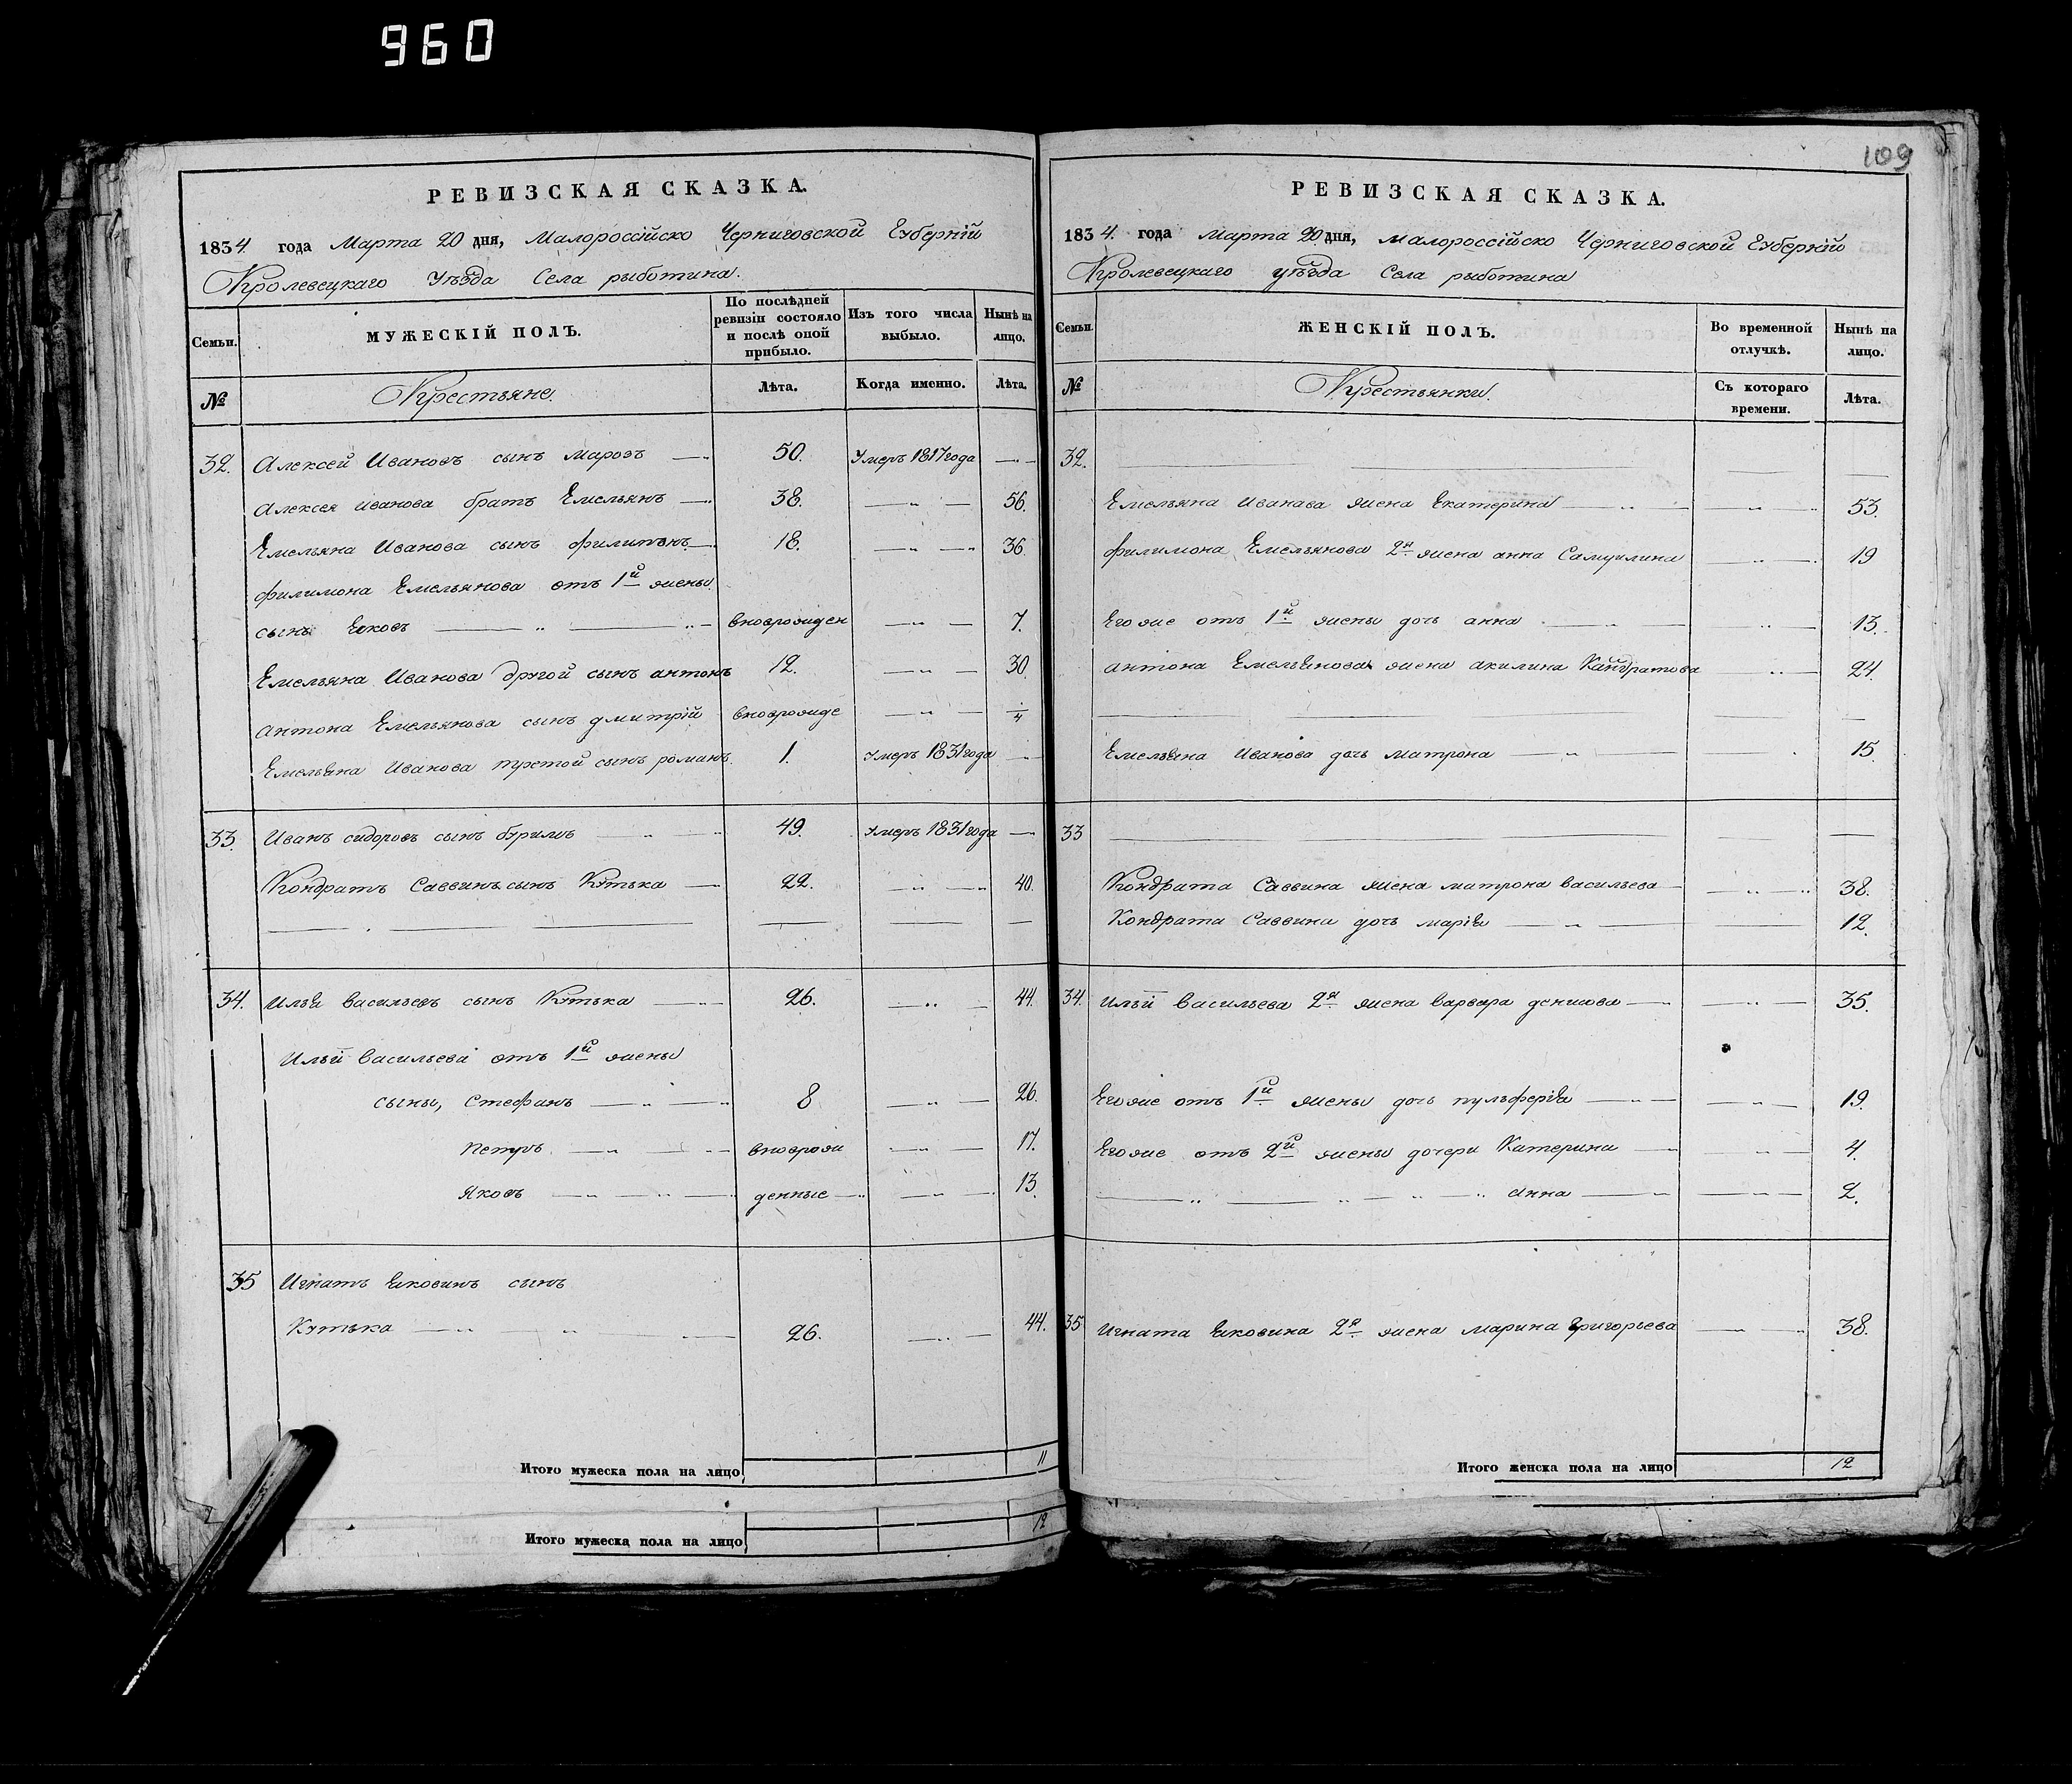 960
109
РЕВИЗСКАЯ СКАЗКА.
1834 года Марта 20 дня, Малороссійско Черниговской Губерніи
Кролевецкаго Уѣзда Села рыботина.
Семьи. МУЖЕСКІЙ ПОЛЪ. По послѣдней ревизіи состояло и послѣ оной прибыло. Изъ того числа выбыло. Нынѣ на лицо.
№ Крестьяне. Лѣта. Когда именно. Лѣта.
32. Алексей Ивановъ сынъ марозъ 50. Умеръ 1817 года
Алексея иванова братъ Емельянъ 38. 56.
Емельяна Иванова сынъ филимонъ 18. 36.
филимона Емельянова отъ 1й жены
сынъ Яковъ вноврожден 7.
Емельяна Иванова другой сынъ антонъ 12. 30.
антона Емельянова сынъ дмитрій вноврожде 1/4
Емельяна Иванова третой сынъ романъ. 1. Умеръ 1831 года
33. Иванъ сидоровъ сынъ буримъ 49. Умеръ 1831 года
Кондратъ Саввинъ сынъ Кутька 22. 40.
34. Илья васильевъ сынъ Кутька 26. 44.
Ильи васильева отъ 1й жены
сыны, Стефанъ 8 26.
петръ вноврож 17.
Яковъ денные 13.
35 Игнатъ Яковинъ сынъ
Кутька 26. 44.
Итого мужеска пола на лицо 11
Итого мужеска пола на лицо 12
РЕВИЗСКАЯ СКАЗКА.
1834. года Марта 20 дня, малороссійско Черниговской Губерніи
Кролевецкаго уѣзда Села рыботина
Семьи. ЖЕНСКІЙ ПОЛЪ. Во временной отлучкѣ. Нынѣ на лицо.
№ Крестьянки. Съ котораго времени. Лѣта.
32.
Емельяна Иванава жена Екатерина 53.
филимона Емельянова 2я жена анна Самуилина 19
Его же отъ 1й жены дочь анна 13.
антона Емельянова жена акилина Кандратова 24.
Емельяна Иванова дочь матрона 15.
33
Кондрата Саввина жена матрона васильева 38.
Кондрата Саввина дочь марія 12.
34. Ильи васильева 2я жена варвара денисова 35.
Его же отъ 1й жены дочь пульферія 19.
Его же отъ 2й жены дочери Катерина 4.
Анна 2.
35 Игната Яковина 2я жена марина григорьева 38.
Итого женска пола на лицо 12